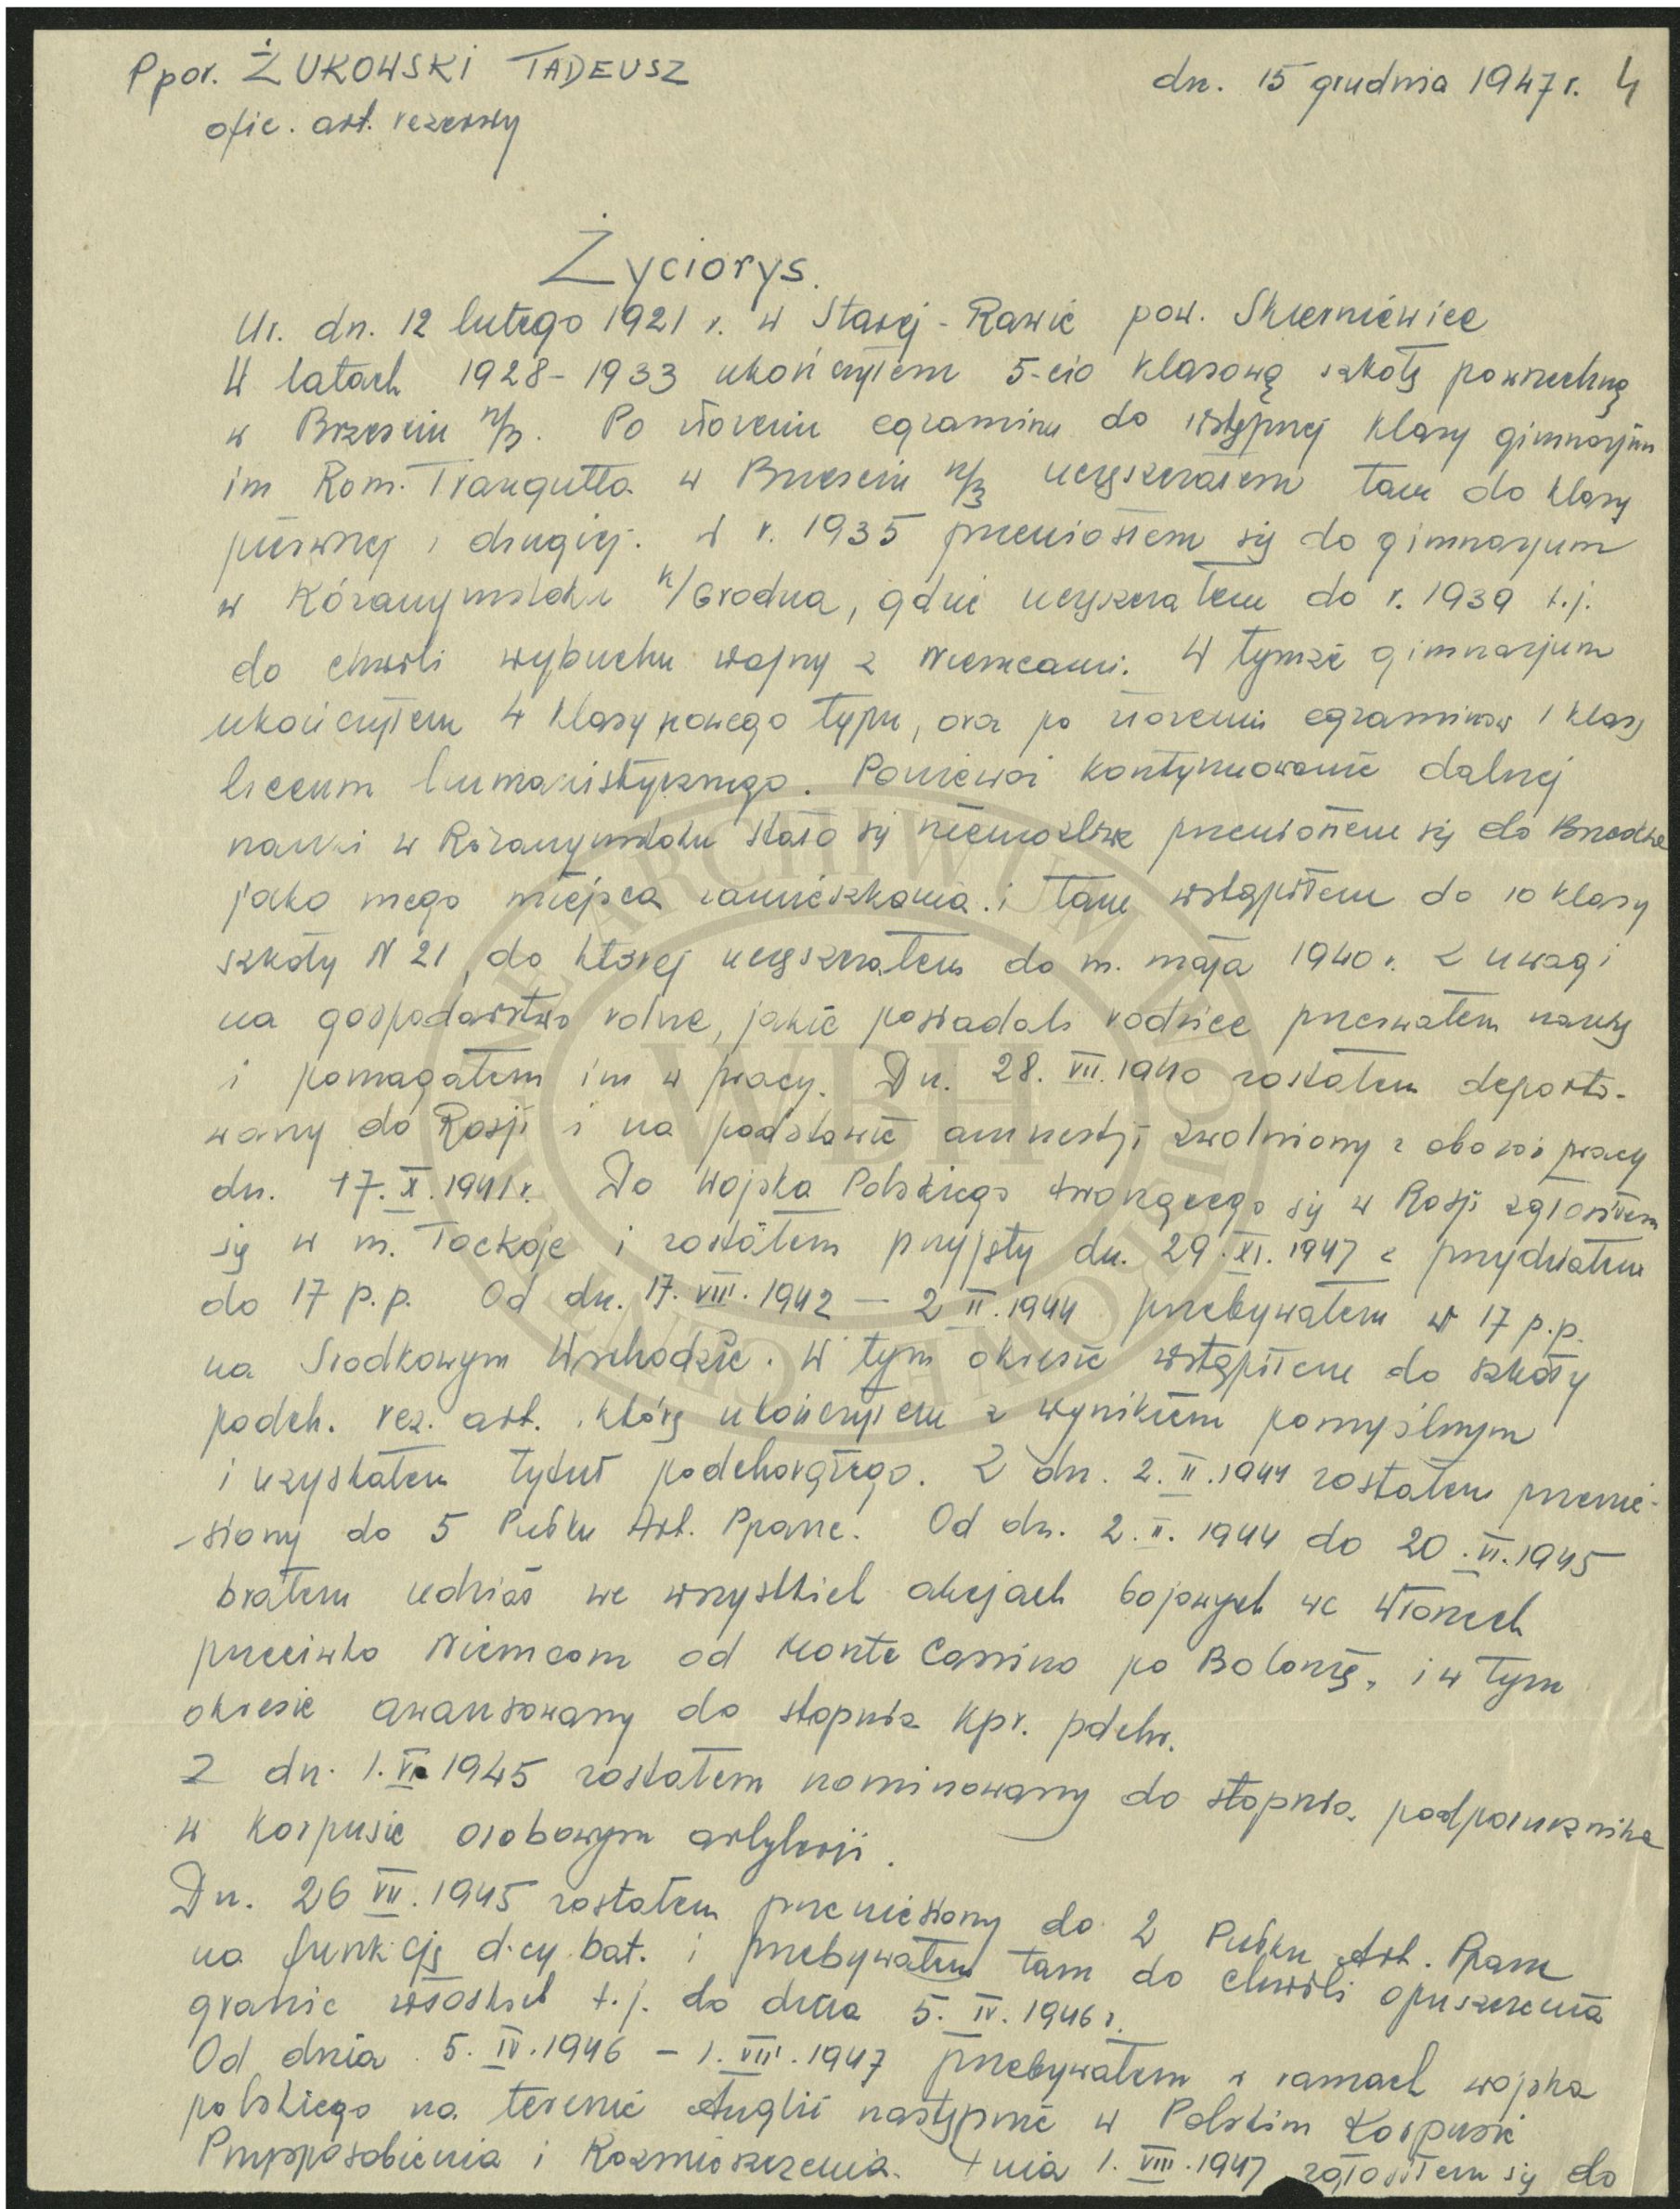 Ppor. ŻUKOWSKI TADEUSZ
dn. 15 grudnia 1947 r. 4
ofic. art. rezerwy
Życiorys.
Ur. dn. 12 lutego 1921 r. w Starej-Rawie pow. Skierniewice
W latach 1928-1933 ukończyłem 5-cio klasową szkołę powszechną
w Brześciu n/B. Po złożeniu egzaminu do wstępnej klasy gimnazjum
im Rom. Traugutta w Brześciu n/B uczęszczałem tam do klasy
pierwszej i drugiej. W r. 1935 przeniosłem się do gimnazjum
w Różanymstoku k/Grodna, gdzie uczęszczałem do r. 1939 t.j.
do chwili wybuchu wojny z Niemcami. W tymże gimnazjum
ukończyłem 4 klasy nowego typu, oraz po złożeniu egzaminów 1 klasę
liceum humanistycznego. Ponieważ kontynuowanie dalszej
nauki w Różanymstoku stało się niemożliwe przeniosłem się do
jako mego miejsca zamieszkania i tam wstąpiłem do 10 klasy
szkoły N 21, do której uczęszczałem do m. maja 1940 r. Z uwagi
na gospodarstwo rolne, jakie posiadali rodzice przerwałem naukę
i pomagałem im w pracy. Dn. 28. VII. 1940 zostałem deporto-
wany do Rosji i na podstawie amnestji zwolniony z obozu pracy
dn. 17. X. 1941 r. Do Wojska Polskiego tworzącego się w Rosji zgłosiłem
się w m. Tockoje i zostałem przyjęty dn. 29. XI. 1947 z przydziałem
do 17 p.p. Od dn. 17. VIII. 1942 – 2 II. 1944 przebywałem w 17 p.p.
na Środkowym Wschodzie. W tym okresie wstąpiłem do szkoły
podch. rez. art. którą ukończyłem z wynikiem pomyślnym
i uzyskałem tytuł podchorążego. Z dn. 2. II. 1944 zostałem przenie-
-siony do 5 Pułku Art. Ppanc. Od dn. 2. II. 1944 do 20. VI. 1945
brałem udział we wszystkich akcjach bojowych we Włoszech
przeciwko Niemcom od Monte Cassino po Bolonię, i w tym
okresie awansowany do stopnia kpr. pdchr.
Z dn. 1. VI 1945 zostałem nominowany do stopnia podporucznika
w korpusie osobowym artylerji.
Dn. 26 VII. 1945 zostałem przeniesiony do 2 Pułku Art. Ppanc
na funkcję d-cy bat. i przebywałem tam do chwili opuszczenia
granic włoskich t.j. do dnia 5. IV. 1946 r.
Od dnia 5. IV. 1946 – 1. VIII. 1947 przebywałem w ramach wojska
polskiego na terenie Anglii następnie w Polskim Korpusie
Przysposobienia i Rozmieszczenia. Dnia 1. VIII. 1947 zgłosiłem się do